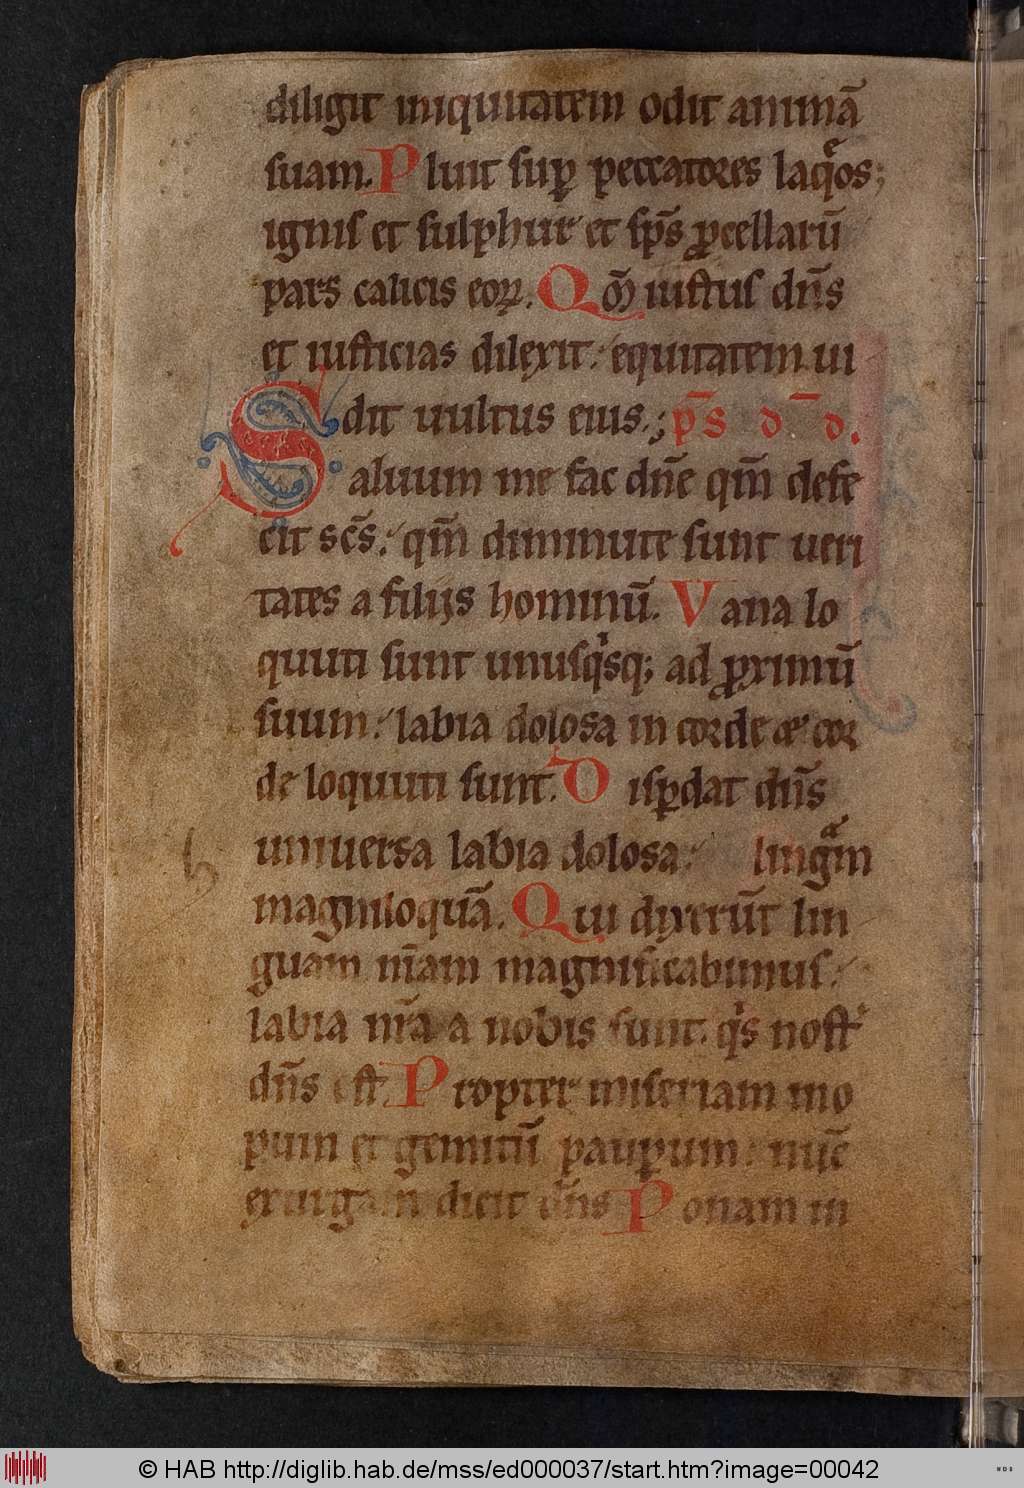 diligit iniquitatem odit animā
suam. Pluit suꝑ peccatores laqͣos;
ignis et sulphur et sp̄s ꝓcellarū
pars calicis eoꝝ. Qm̄ iustus dn̄s
et iusticias dilexit: equitatem ui
dit uultus eius.; p̄s d̄ d.
Saluum me fac dn̄e qm̄ defe
cit sc̄s: qm̄ diminute sunt ueri
tates a filijs hominū. Vana lo
quuti sunt unusqͥsq; ad ꝓximū
suum: labia dolosa in corde & cor
de loquuti sunt. Disꝑdat dn̄s
uniuersa labia dolosa: lingͣm
magniloquā. Qui dixerūt lin
guam nr̄am magnificabimus:
labia nr̄a a nobis sunt. qͥs nost᷑
dn̄s est. Propter miseriam ino
pum et gemitū pauꝑum: nūc
exurgam dicit dn̄s Ponam in
h
© HAB http://diglib.hab.de/mss/ed000037/start.htm?image=00042